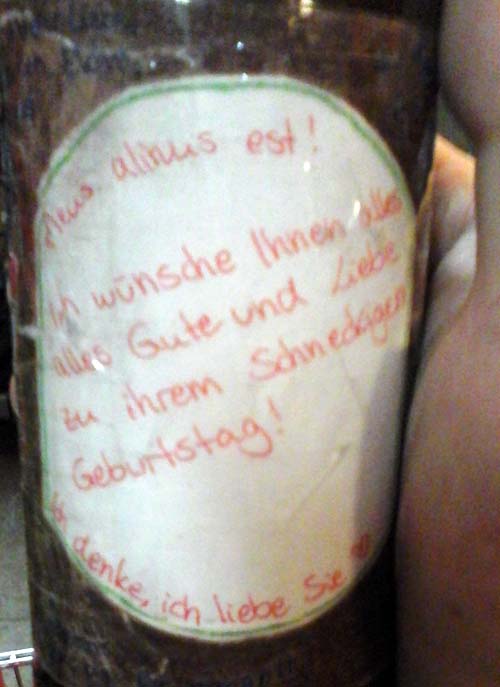 alinus est!
Ich wünsche Ihnen alles
alles Gute und Liebe
zu ihrem Schneckigen
Geburtstag!
Ich denke, ich liebe Sie ♡